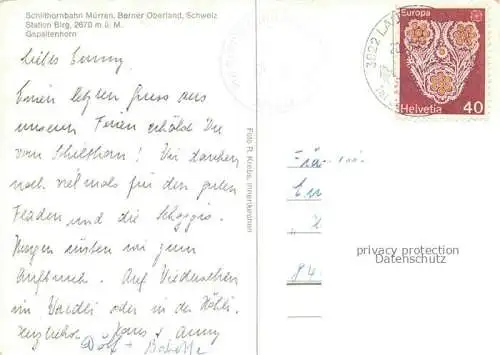 Schilthornbahn Mürren, Berner Oberland, Schweiz
Station Birg, 2670 m ü. M.
Gspaltenhorn
Liebes Emmy.
Einen letzten Gruss aus
unseren Ferien erhälst Du
vom Schilthorn! Wir danken
noch vielmals für den guten
Fladen und die Schoggi.
Morgen rüsten wir zum
Aufbruch. Auf Wiedersehen
im Wändli oder in der Höhli.
herzlichst Hans + Anny
Dölf +
Foto R. Krebs, Innertkirchen
3822 LA
Europa
Helvetia 40
84
privacy protection
Datenschutz